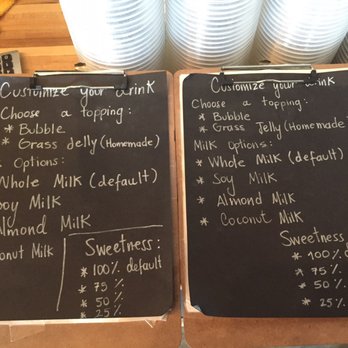 Customize your drink
Choose a topping:
* Bubble
* Grass Jelly (Homemade)
Options:
Whole Milk (default)
oy Milk
Almond Milk
onut Milk
Sweetness:
* 100% default
* 75%
* 50%
* 25%
Customize your drink
Choose a topping:
* Bubble
* Grass Jelly (Homemade)
Milk Options:
* Whole Milk (default)
* Soy Milk
* Almond Milk
* Coconut Milk
Sweetness
* 100%
* 75%
* 50%
* 25%